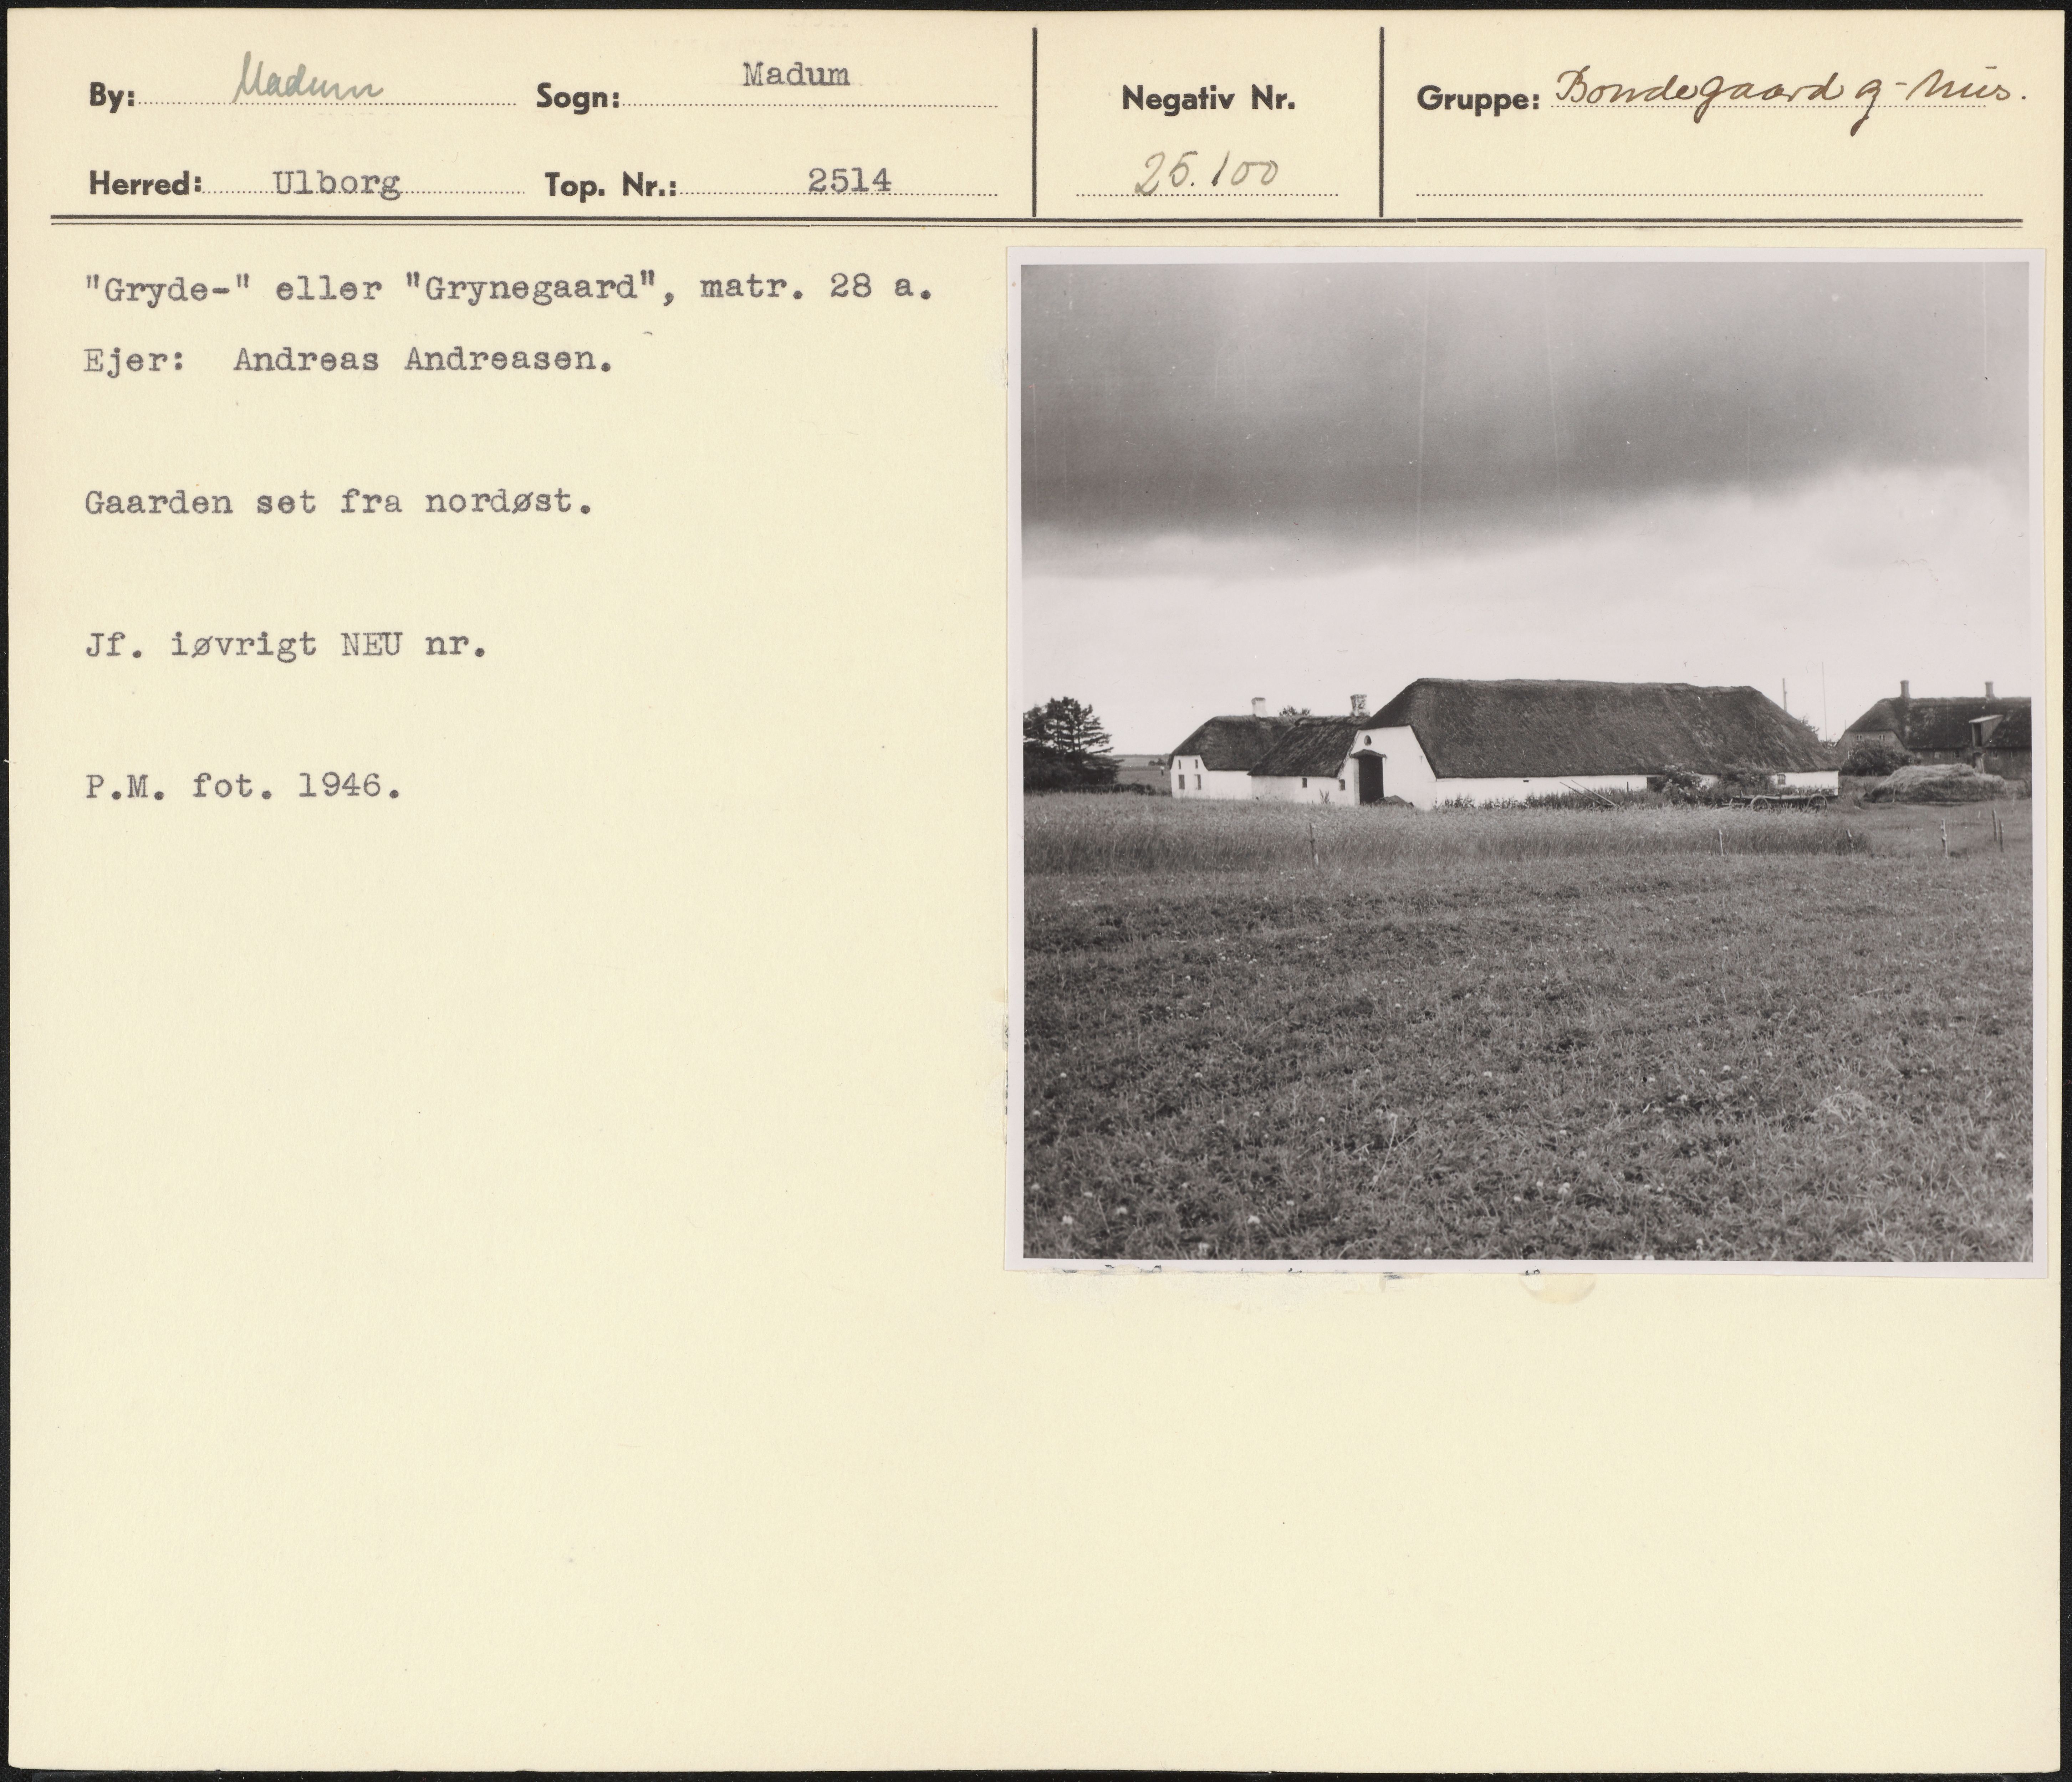 By: Madum Sogn: Madum Negativ Nr. Gruppe: Bondegaard og -hus.
Herred: Ulborg Top. Nr.: 2514 25.100
"Gryde-" eller "Grynegaard", matr. 28 a.
Ejer: Andreas Andreasen.
Gaarden set fra nordøst.
Jf. iøvrigt NEU nr.
P.M. fot. 1946.